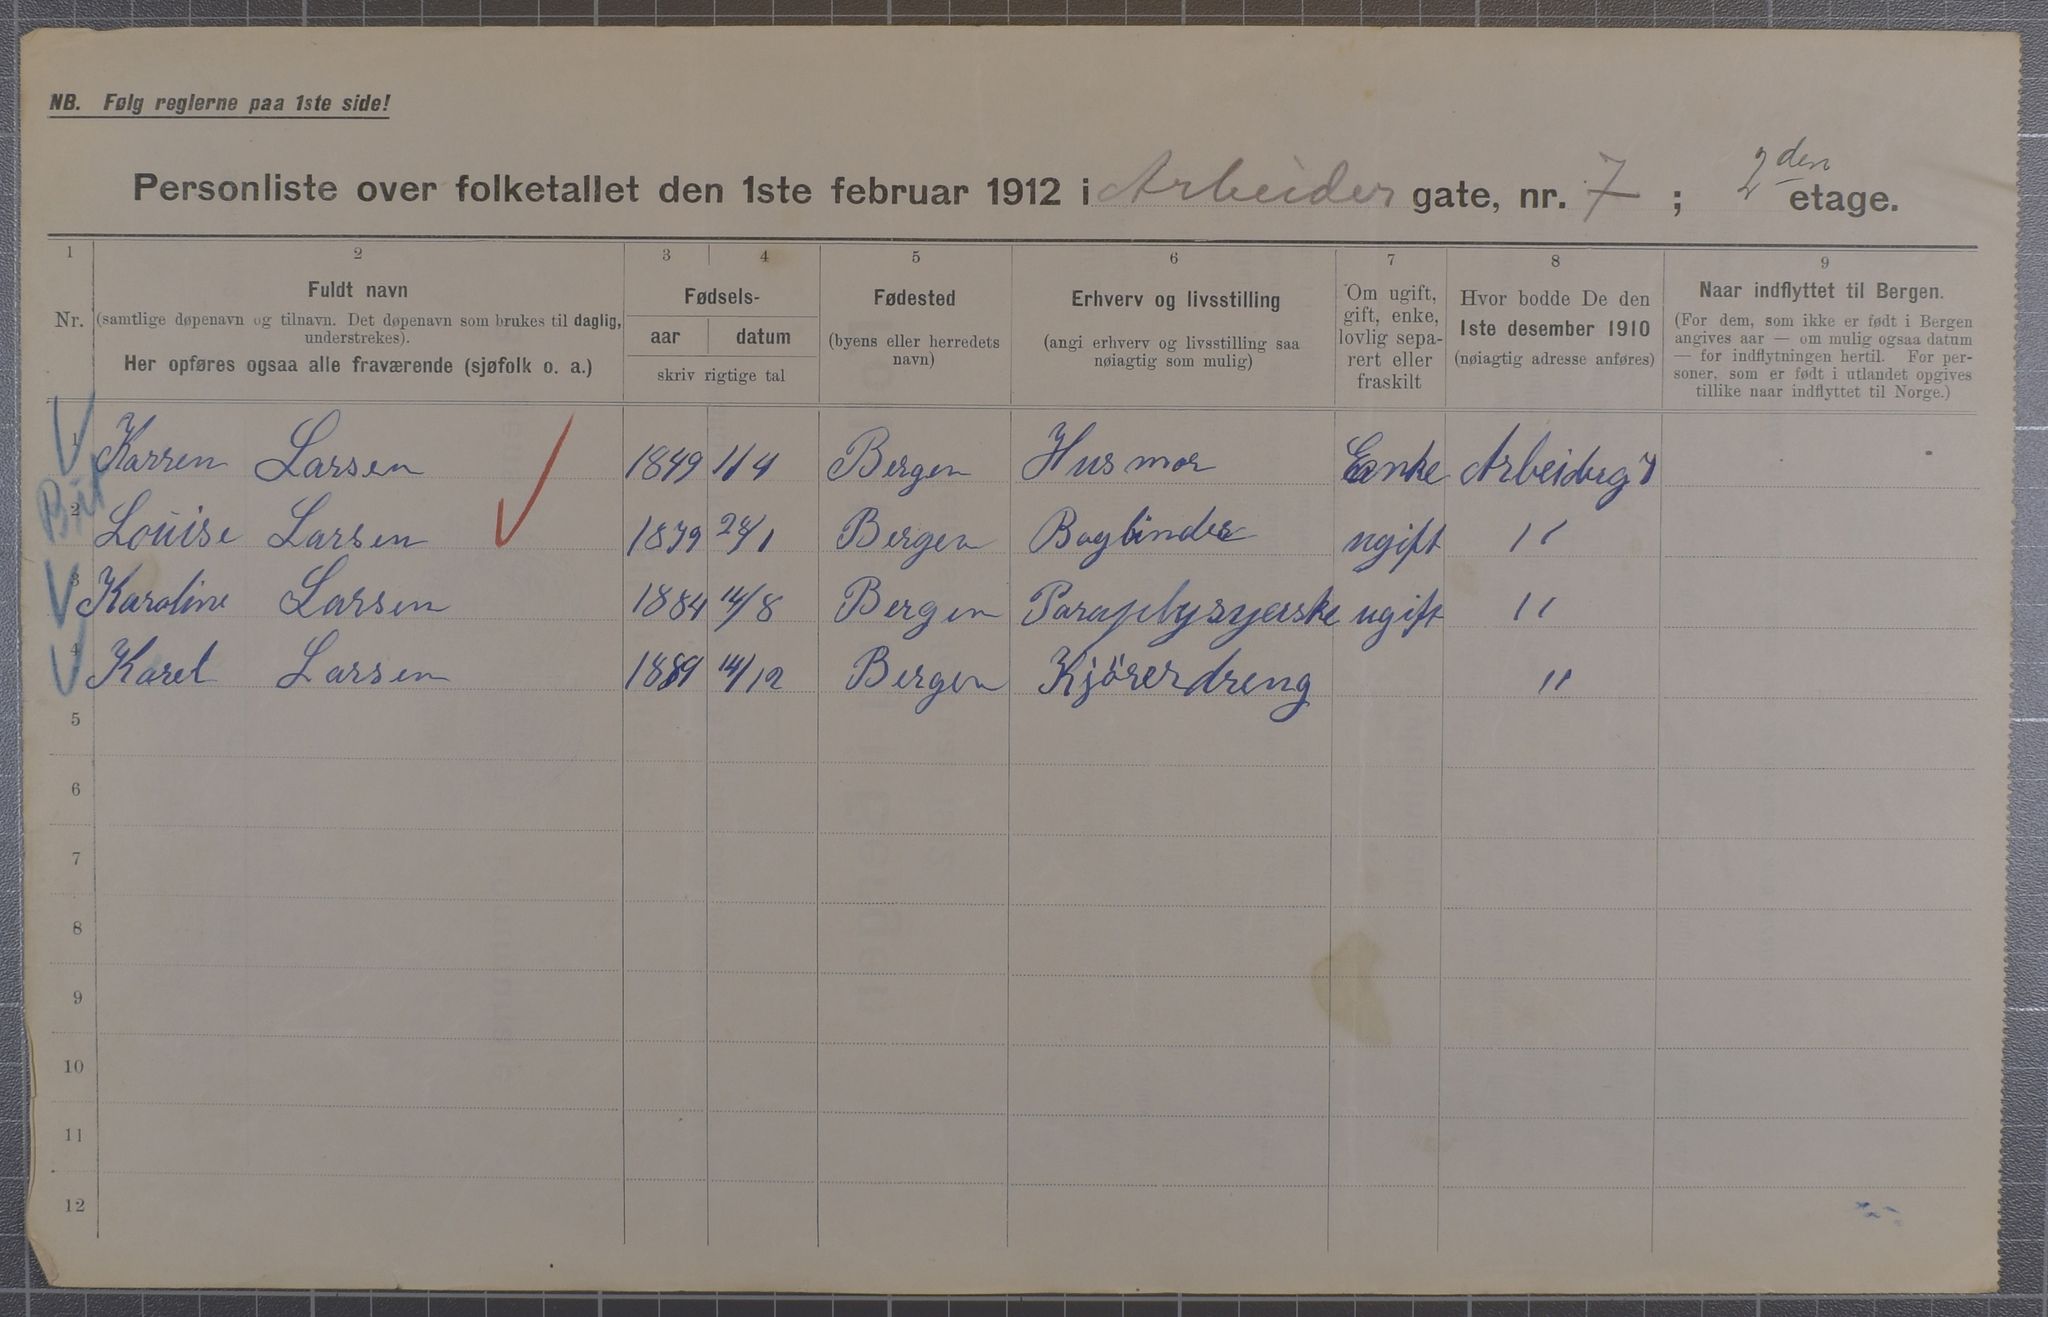 NB. Følg reglerne paa 1ste side!
Personliste over folketallet den 1ste februar 1912 i Arbeider gate, nr. 7 ; 2den etage.
1 2 3 4 5 6 7 8 9
Nr.
Fuldt navn
(samtlige døpenavn og tilnavn. Det døpenavn som brukes til daglig,
understrekes).
Her opføres ogsaa alle fraværende (sjøfolk o. a.)
Fødsels-
aar datum
skriv rigtige tal
Fødested
(byens eller herredets
navn)
Erhverv og livsstilling
(angi erhverv og livsstilling saa
nøiagtig som mulig)
Om ugift,
gift, enke,
lovlig sepa-
rert eller
fraskilt
Hvor bodde De den
1ste desember 1910
(nøiagtig adresse anføres)
Naar indflyttet til Bergen.
(For dem, som ikke er født i Bergen
angives aar — om mulig ogsaa datum
— for indflytningen hertil. For per-
soner, som er født i utlandet opgives
tillike naar indflyttet til Norge.)
1 Karren Larsen 1849 11/4 Bergen Husmor Enke Arbeiderg 7
2 Louise Larsen 1879 /1 Bergen Bogbinder ugift "
3 Karoline Larsen 1884 14/8 Bergen Paraplysyerske ugift "
4 Karel Larsen 1889 14/12 Bergen Kjörerdreng "
5
6
7
8
9
10
11
12